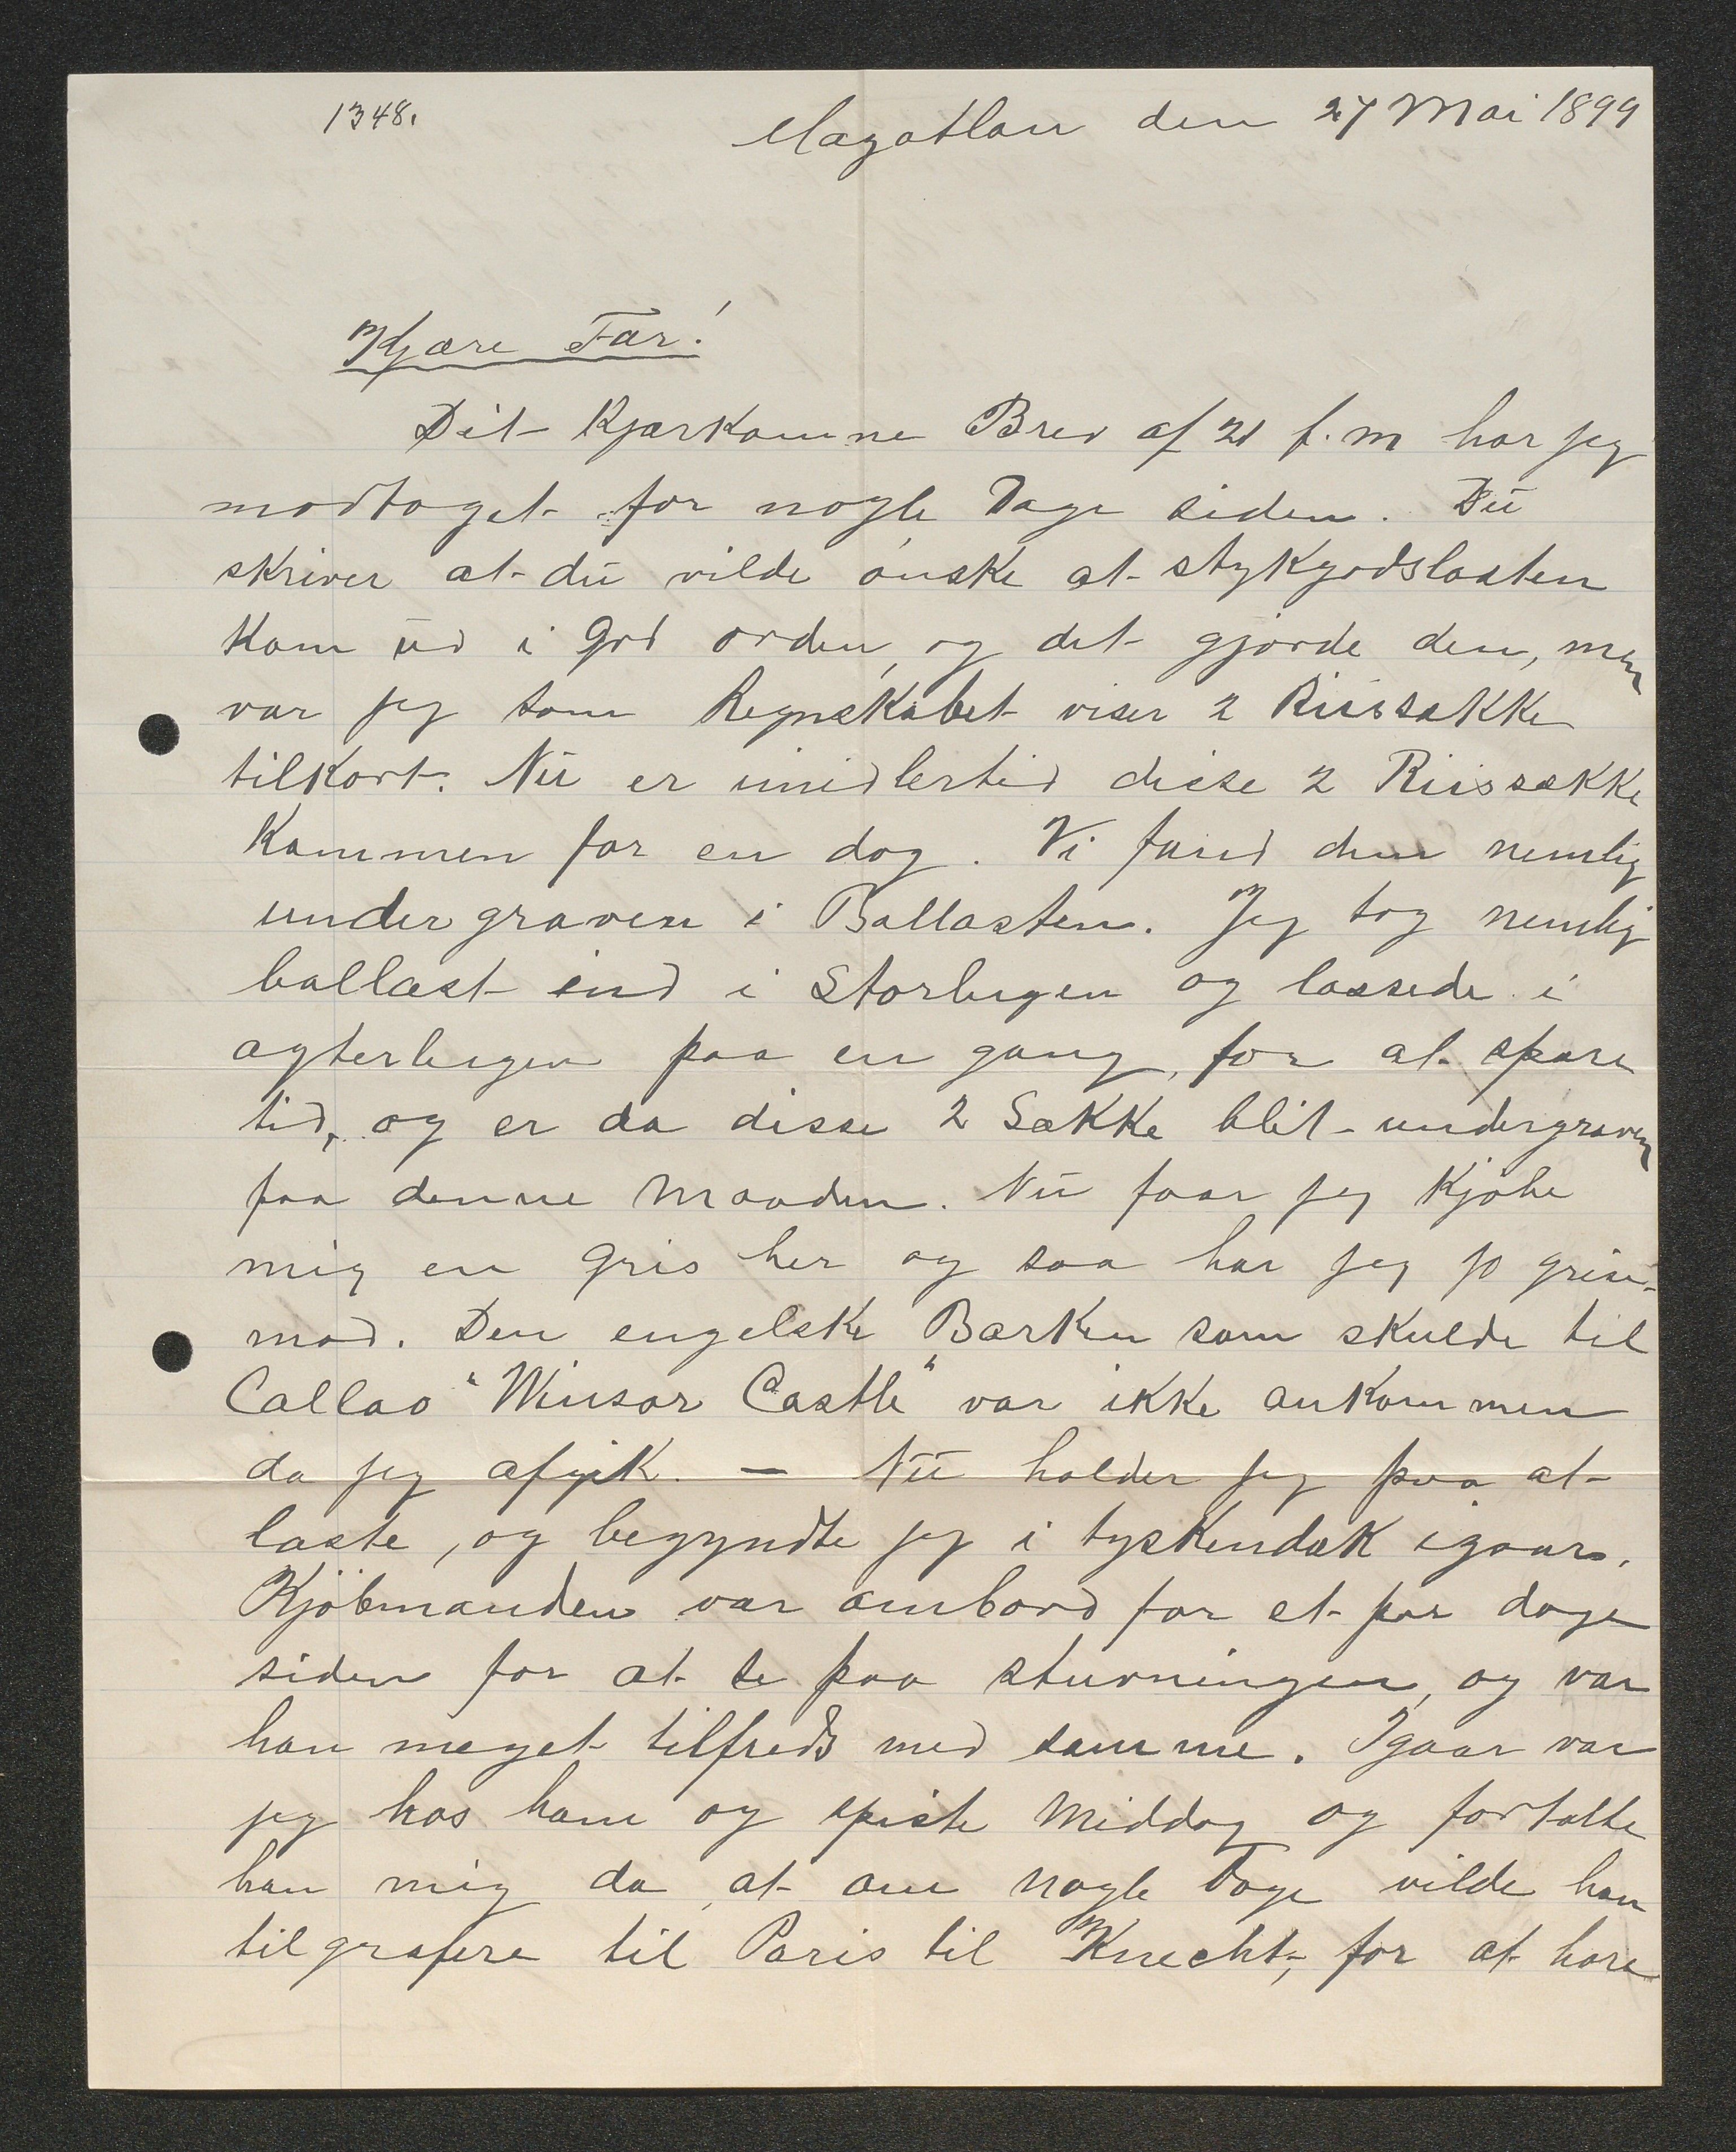 1348.
Mazatlan den 27 Mai 1899
Kjære Far!
Dit kjærkomne Brev af 21 f.m har jeg
modtaget for nogle Dage siden. Du
skriver at du vilde ønske at stykgodslasten
kom ud i god orden, og det gjorde den, men
var jeg som Regnskabet viser 2 Riissække
tilkort. Nu er imidlertid disse 2 Riissække
kommen for en dag. Vi fand dem nemlig
undergraven i Ballasten. Jeg tog nemlig
ballast ind i Storlugen og lossede i
agterlugen paa en gang, for at spare
tid, og er da disse 2 Sække blit undergraven
paa denne Maaden. Nu faar jeg kjøbe
mig en Gris her og saa har jeg jo grise-
mad. Den engelske Barken som skulde til
Callao "Winsor Castle" var ikke ankommen
da jeg afgik. — Nu holder jeg paa at
laste, og begyndte jeg i tyskendæk igaar.
Kjöbmanden var ombord for et par dage
siden for at se paa stuvningen, og var
han meget tilfreds med samme. Igaar var
jeg hos ham og spiste Middag og fortalte
han mig da, at om nogle Dage vilde han
tilgrafere til Paris til Knecht, for at høre